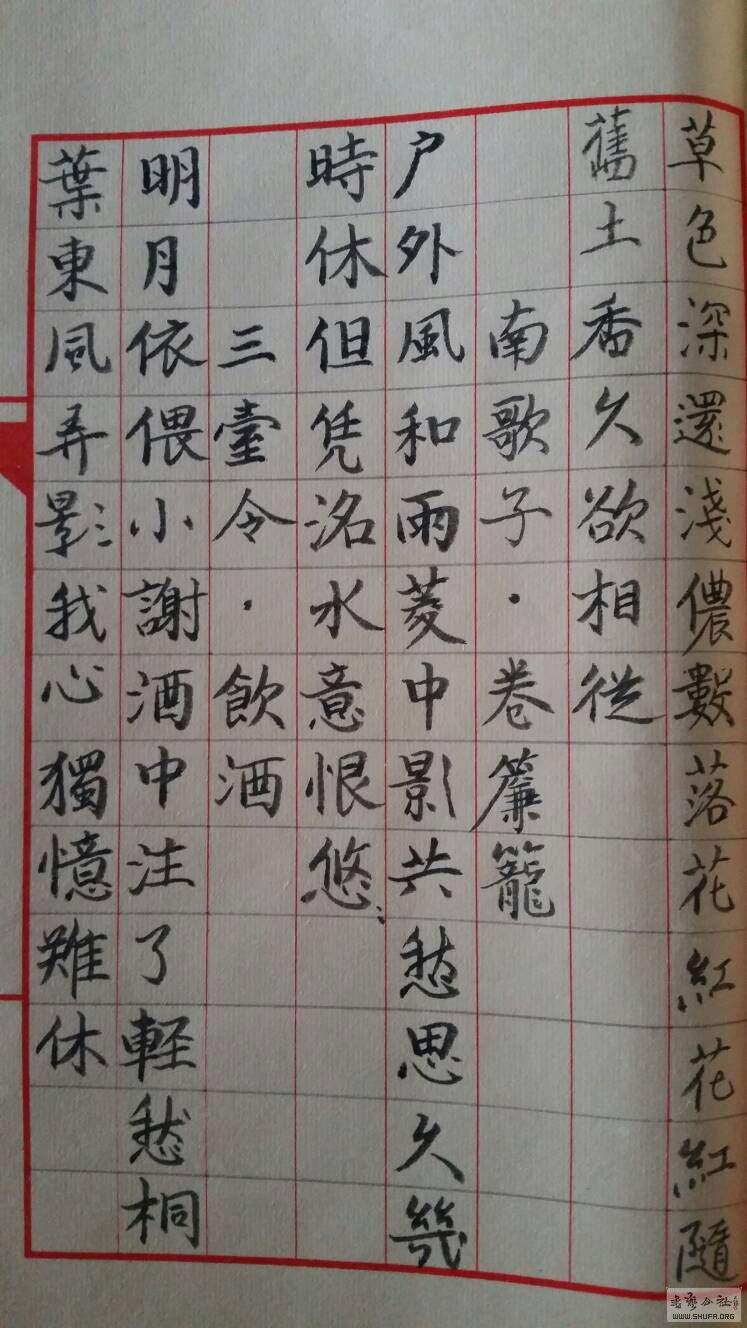 草色深還淺儂數落花紅花紅隨
舊土香久欲相從
南歌子·卷簾籠
户外風和雨菱中影共愁思久幾
時休但凭洺水意恨悠〻
三臺令·飲酒
明月依偎小謝酒中注了輕愁桐
葉東風弄影我心獨憶難休
WWW.SHUFA.ORG